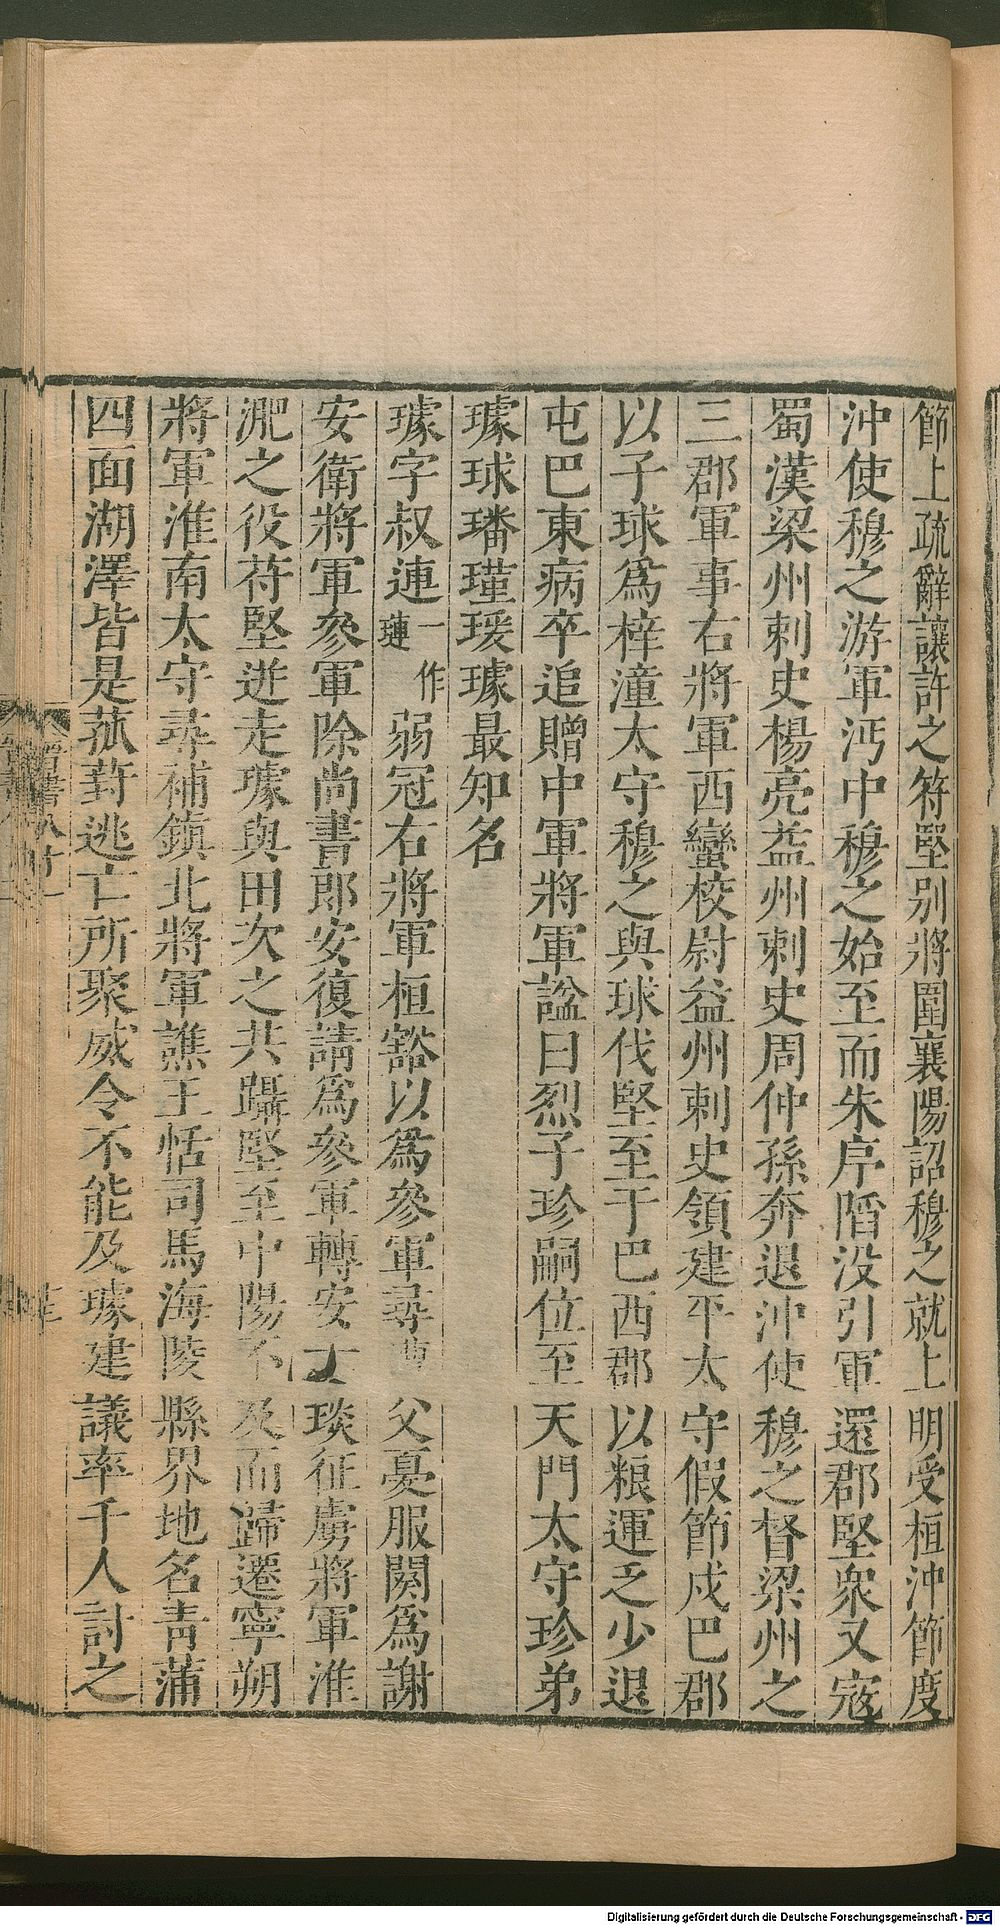 節上疏辭讓許之符堅别將圍襄陽詔穆之就上明受桓沖節度
沖使穆之游軍沔中穆之始至而朱序䧟没引軍還郡堅衆又寇
蜀漢梁州刺史楊亮益州刺史周仲孫奔退沖使穆之督梁州之
三郡軍事右將軍西蠻校尉益州刺史領建平太守假節戍巴郡
以子球爲梓潼太守穆之與球伐堅至于巴西郡以粮運乏少退
屯巴東病卒追贈中軍將軍諡曰烈子珍嗣位至天門太守珍弟
璩球璠瑾瑗璩最知名
璩字叔連一作璉弱冠右將軍桓豁以爲參軍尋遭父憂服闋爲謝
安衛將軍參軍除尚書郎安復請爲參軍轉安子琰征虜將軍淮
淝之役苻堅迸走璩與田次之共躡堅至中陽不及而歸遷寧朔
將軍淮南太守尋補鎮北將軍譙王恬司馬海陵縣界地名青蒲
四面湖澤皆是菰葑逃亡所聚威令不能及璩建議率千人討之
晋書八十一
Digitalisierung gefördert durch die Deutsche Forschungsgemeinschaft - DFG